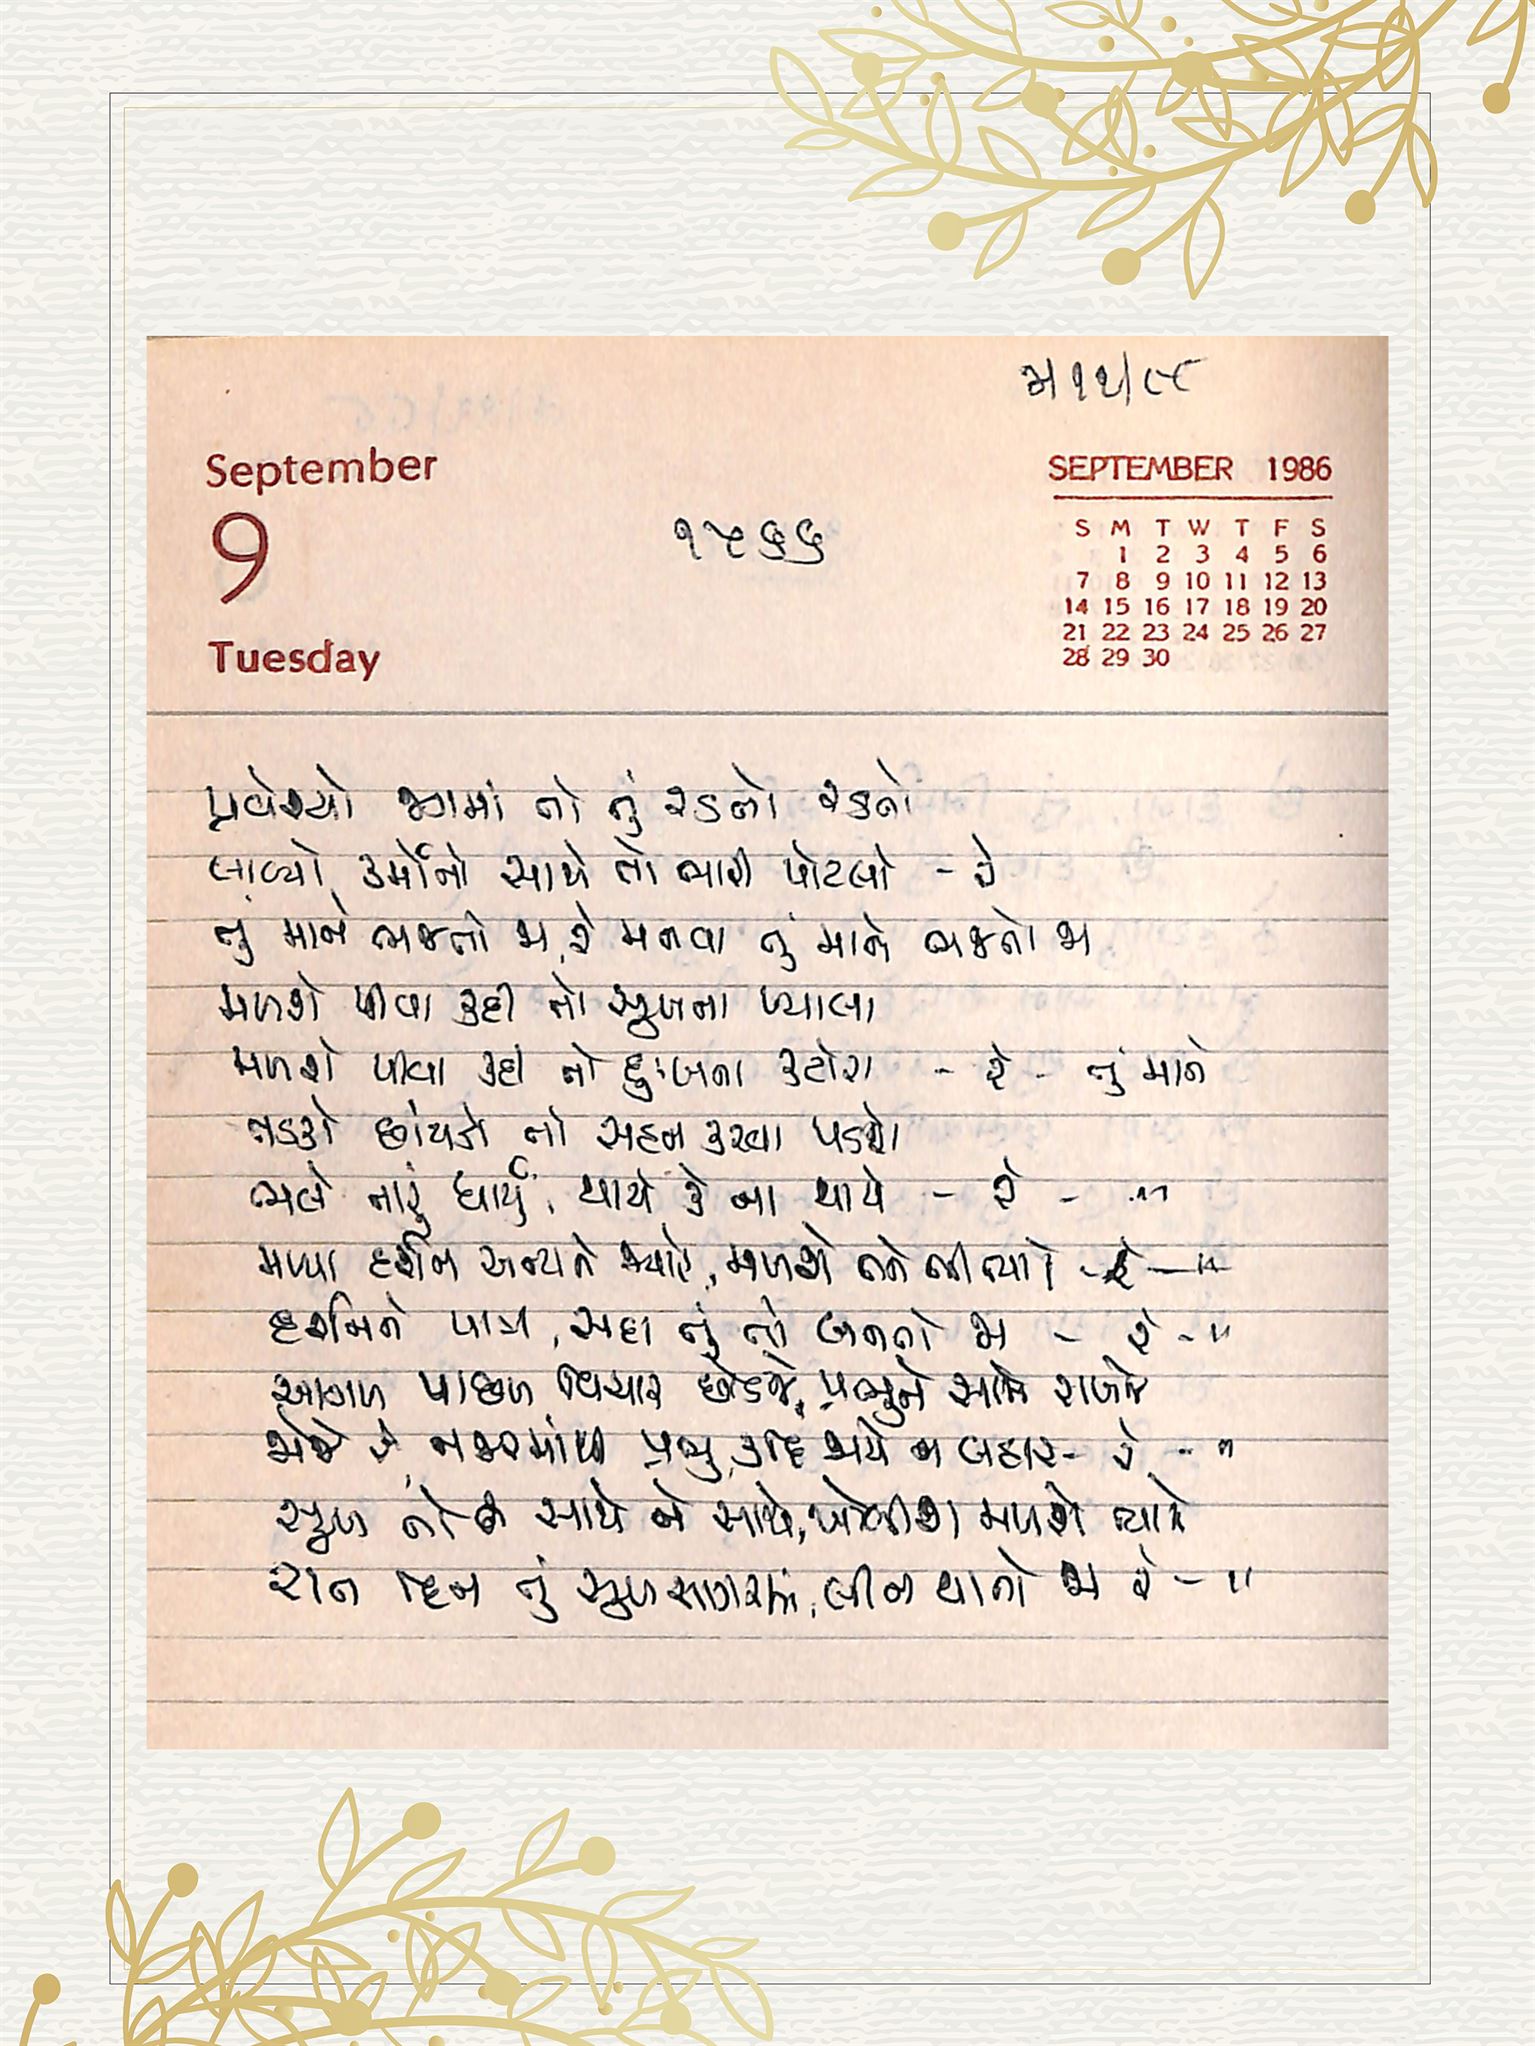 જા ૧૨/૮૯
September
9
Tuesday
૧૫૬૬
SEPTEMBER 1986
S M T W T F S
1 2 3 4 5 6
7 8 9 10 11 12 13
14 15 16 17 18 19 20
21 22 23 24 25 26 27
28 29 30
પ્રવેશ્યો જગમાં તો તું રડતો રડતો
લાવ્યો કર્મોની સાથે તો ભારી પોટલી - રે
તું માને ભજતો જા, રે મનવા તું માને ભજતો જા
મળશે પીવા કદી તો સુખના પ્યાલા
મળશે પીવા કદી તો દુઃખના કટોરા - રે - તું માને
તડકો છાંયડો તો સહન કરવા પડશે
ભલે તારું ધાર્યું, થાયે કે ના થાયે - રે - "
મળ્યા દર્શન અન્યને જ્યારે, મળશે તને ત્યારે - રે - "
દર્શનને પાત્ર, સદા તું તો બનતો જા - રે - "
આગળ પાછળ વિચાર છોડજે, પ્રભુને સાથે રાખજે
જોજે રે, નજરમાંથી પ્રભુ, કદિ જાયે ન બહાર - રે - "
સુખ તો છે સાથે ને સાથે, મળશે ત્યારે
રાત દિન તું સુખ સાગરમાં, લીન થાતો જા રે - "